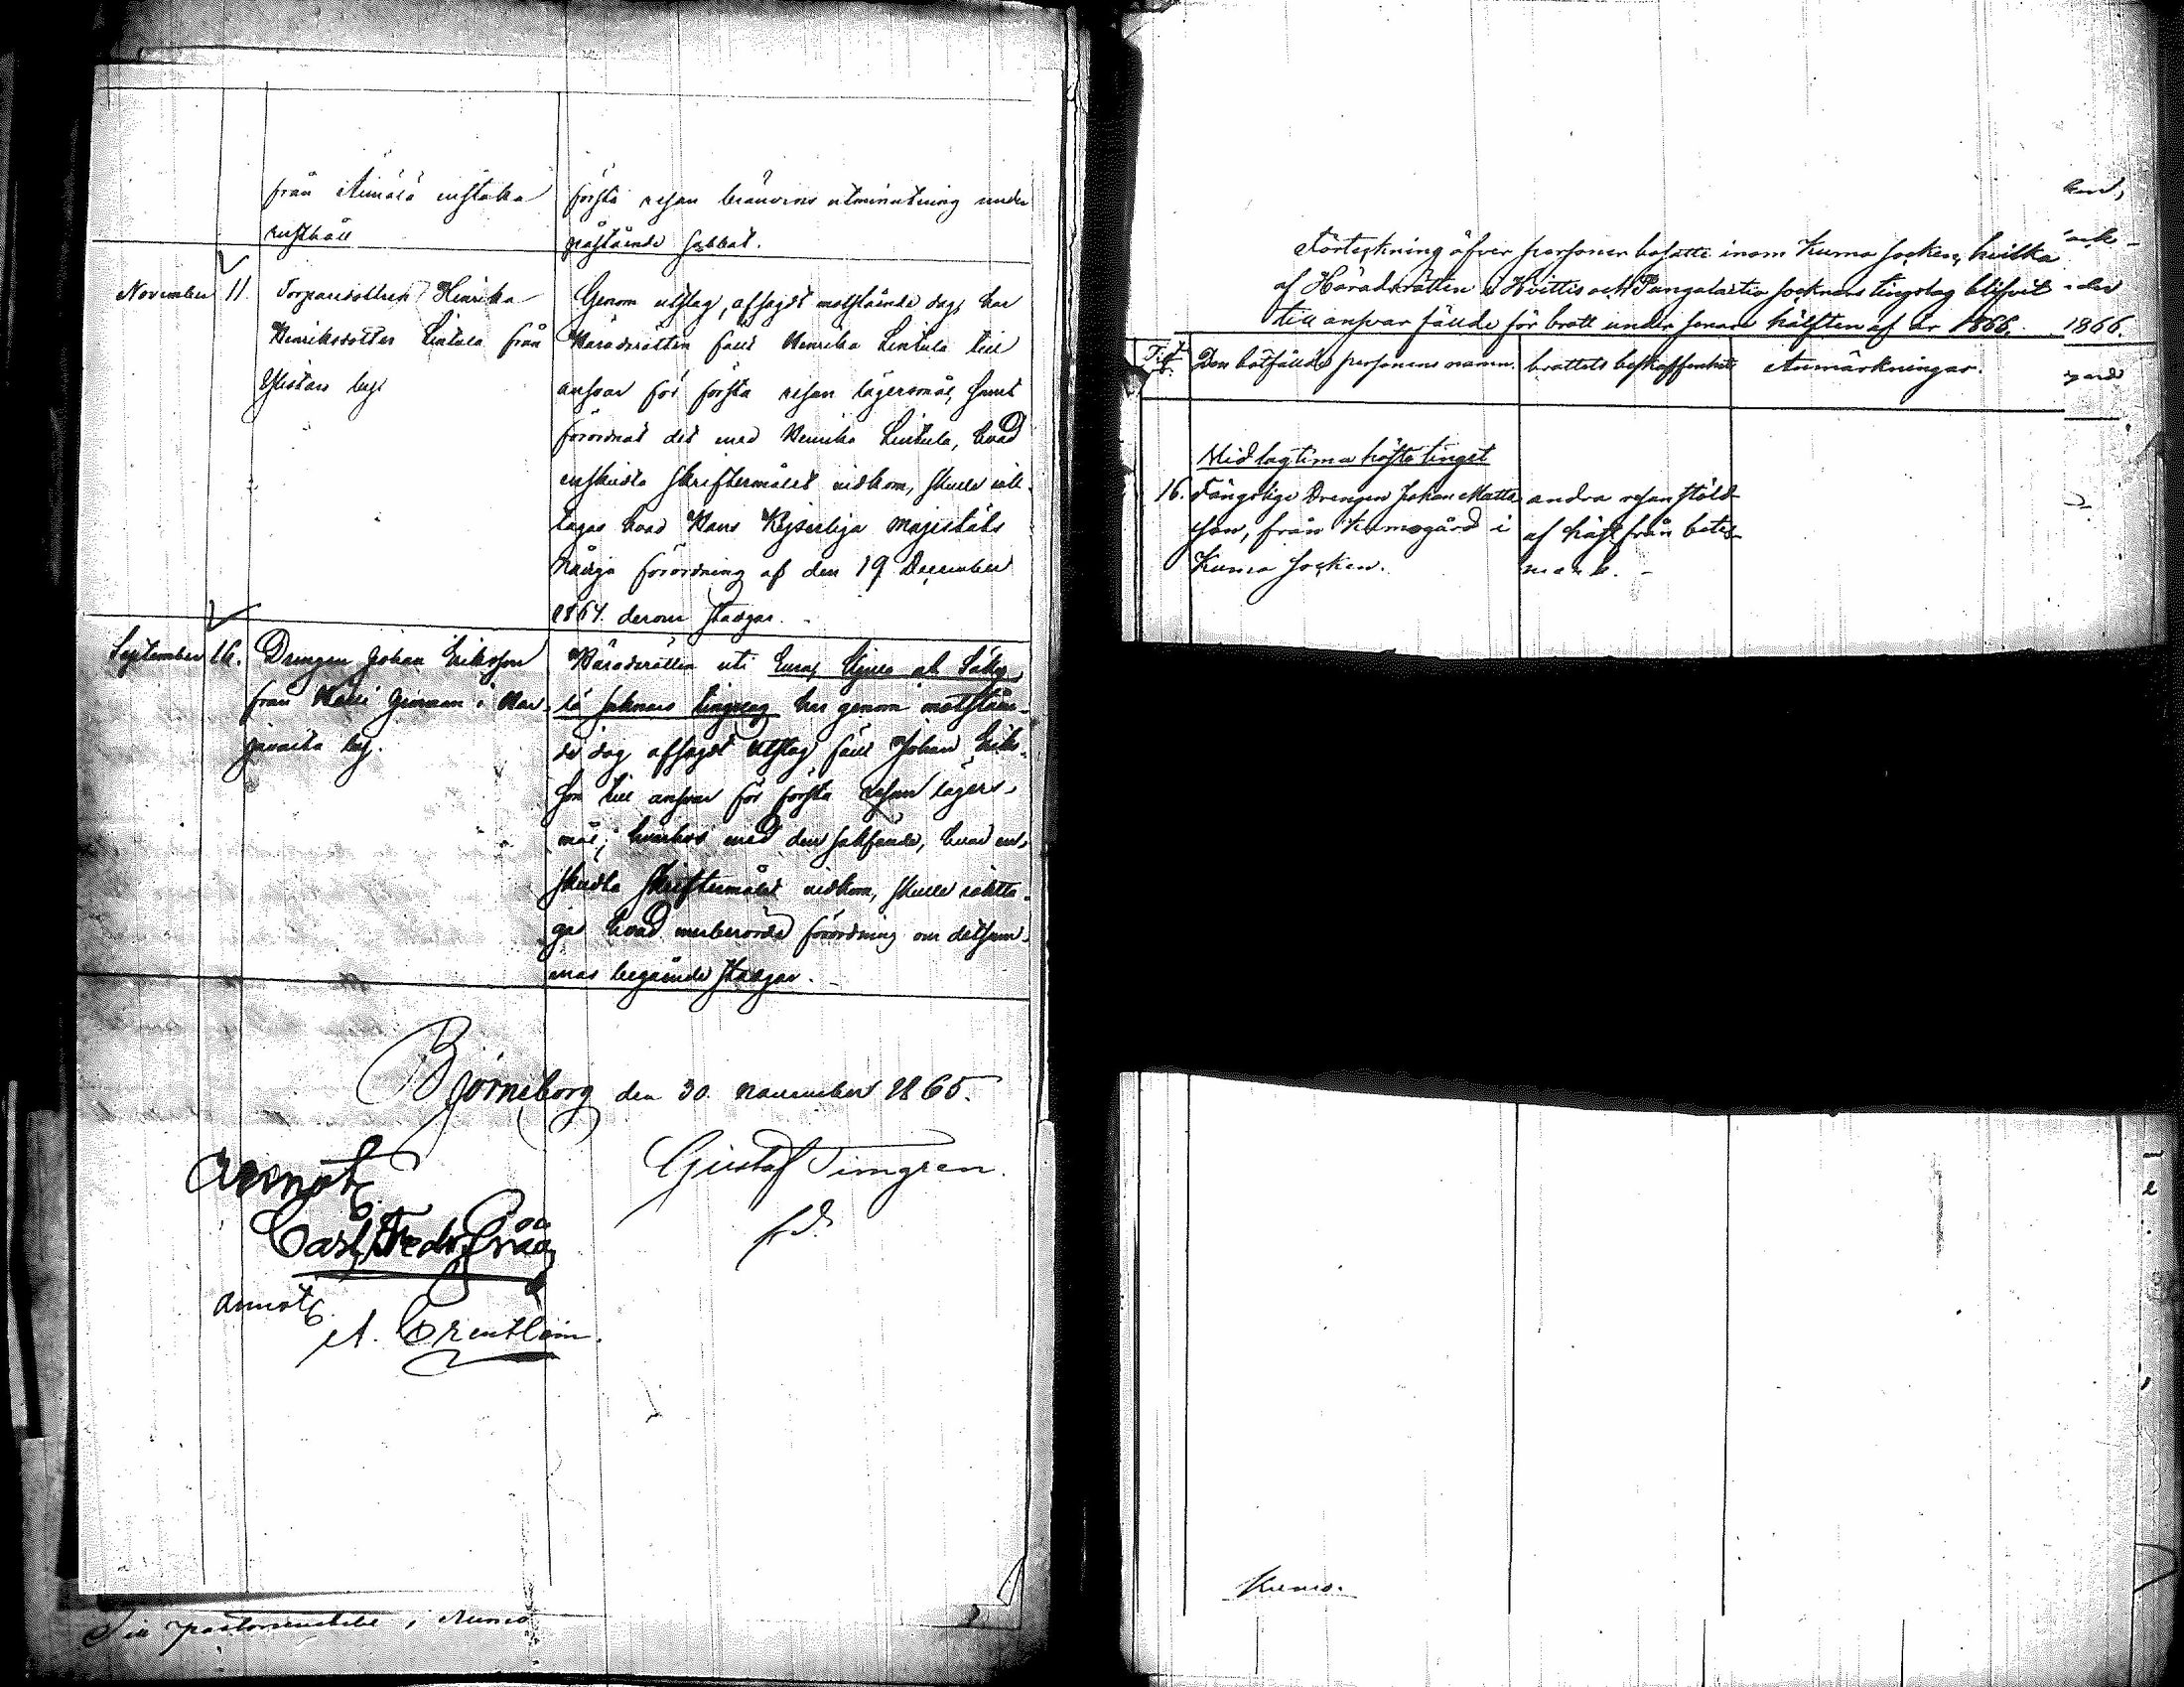 från Aimälä enstaka
rusthåll
första resan bränvins utminutering under
påstående sabbat.
November 11.
Torparedottren Henrika
Henriksdotter Lintula från
Ylistaro by
Genom utslag, afsagdt motstående dag, har
Häradsrätten fällt Henrika Lintula till
ansvar för första resan lägersmål, samt
förordnat det med Henrika Lintula, hvad
enskildta skriftermålet vidkom, skulle iakt-
tagas hvad Hans Kejserliga Majestäts
Nådiga förordning af den 19 December
1864 derom stadgar.
September 16.
Drengen Johan Eriksson
från
by.
Häradsrätten uti Eura, Kjulo och Säky-
lä soknars tingslag har genom motståen-
de dag afsagdt utslag fält Johan Eriks-
son till ansvar för första resan lägers-
mål; hvarhos med den sakfälde, hvad en-
skildta skriftermålet vidkom, skulle iaktta-
gas hvad merberörde förordning om detsam-
mas begående stadgar.
Björneborg den 30 november 1865.
Gustaf Timgren.
Annot
Carl Fredr
annot
A.
Till pastorsembetet i Kumo
Förteckning öfver personer bosatte inom Kumo socken, hvilka
af Häradsrätten i Hvittis och Pungalaitio socknars tingslag blifvit
till ansvar fällde för brott under senare hälften af år 1866.
1866.
Den botfällde personens namn. brottets beskaffenhet Anmärkningar.
Vid lagtima höste tinget
16. Fängslige Drengen Johan Matts-
son, från Kumogård i
Kumo socken.
andra resan stöld
af häst från betes-
mark.
Kumo.